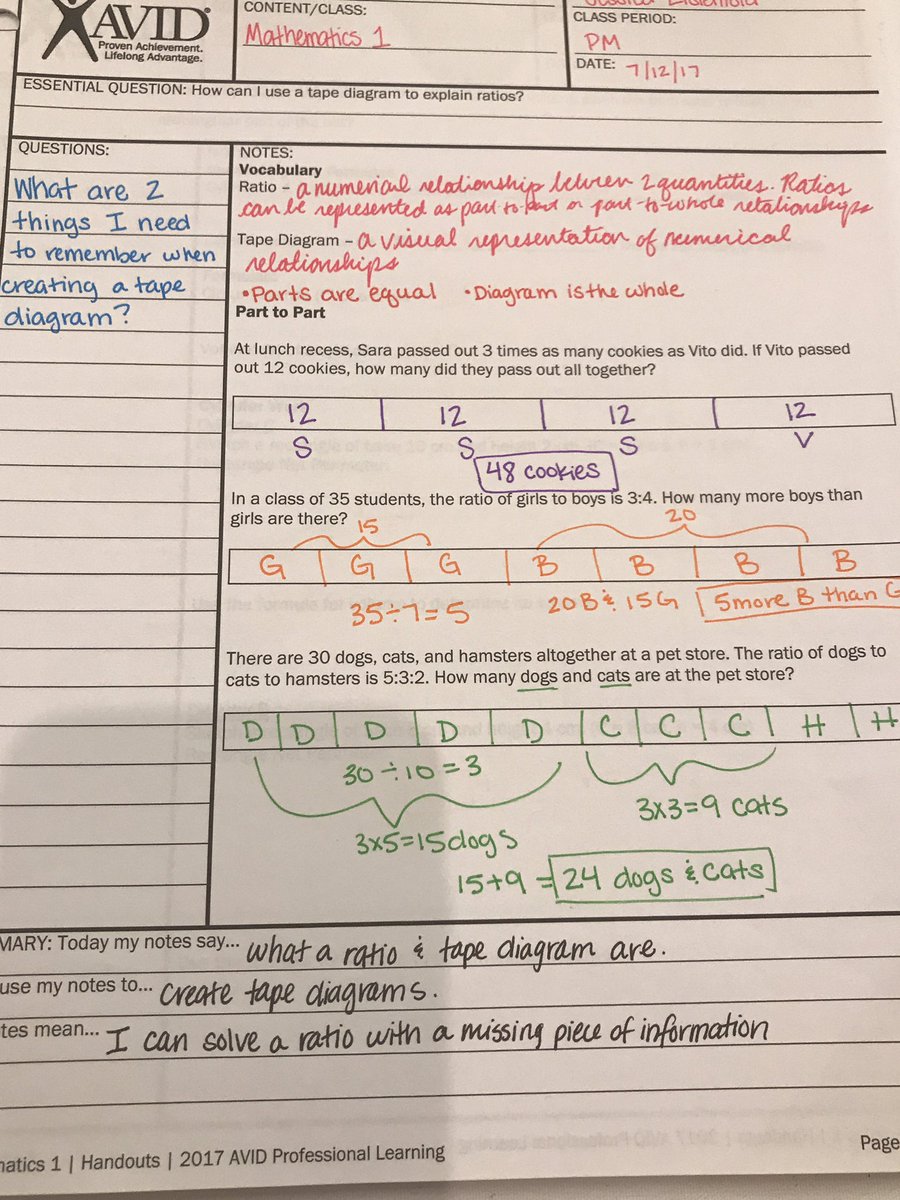 AVID®
Proven Achievement.
Lifelong Advantage.
CONTENT/CLASS:
Mathematics 1
CLASS PERIOD:
PM
DATE: 7/12/17
ESSENTIAL QUESTION: How can I use a tape diagram to explain ratios?
QUESTIONS:
What are 2
things I need
to remember when
creating a tape
diagram?
NOTES:
Vocabulary
Ratio – a numerical relationship between 2 quantities. Ratios
can be represented as part-to-part or part-to-whole relationships
Tape Diagram – a visual representation of numerical
relationships
•Parts are equal •Diagram is the whole
Part to Part
At lunch recess, Sara passed out 3 times as many cookies as Vito did. If Vito passed
out 12 cookies, how many did they pass out all together?
12 12 12 12
S S S V
48 cookies
In a class of 35 students, the ratio of girls to boys is 3:4. How many more boys than
girls are there?
15 20
G G G B B B B
35÷7=5 20B & 15G 5more B than G
There are 30 dogs, cats, and hamsters altogether at a pet store. The ratio of dogs to
cats to hamsters is 5:3:2. How many dogs and cats are at the pet store?
D D D D D C C C H H
30÷10=3
3x3=9 cats
3x5=15dogs
15+9=24 dogs & cats
MARY: Today my notes say... what a ratio & tape diagram are.
use my notes to... create tape diagrams.
tes mean... I can solve a ratio with a missing piece of information
natics 1 | Handouts | 2017 AVID Professional Learning
Page